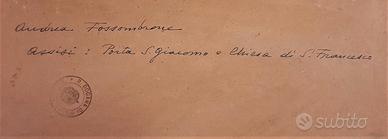 Andrea Fossombrone
Assisi : Porta S. Giacomo e Chiesa di S. Francesco
subito